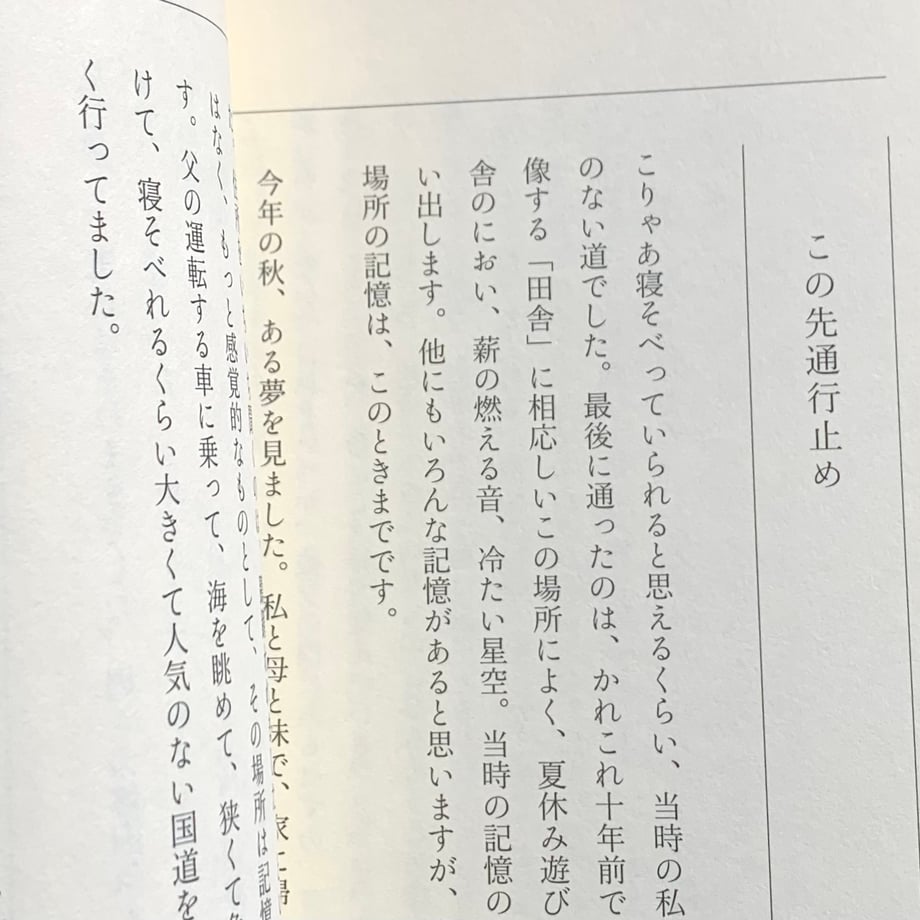 この先通行止め
こりゃあ寝そべっていられると思えるくらい、当時の私
のない道でした。最後に通ったのは、かれこれ十年前で
像する「田舎」に相応しいこの場所によく、夏休み遊び
舎のにおい、薪の燃える音、冷たい星空。当時の記憶の
い出します。他にもいろんな記憶があると思いますが、
場所の記憶は、このときまでです。
今年の秋、ある夢を見ました。私と母と妹で、家に帰
はなく、もっと感覚的なものとして、その場所は記憶
す。父の運転する車に乗って、海を眺めて、狭くて
けて、寝そべれるくらい大きくて人気のない国道を
く行ってました。